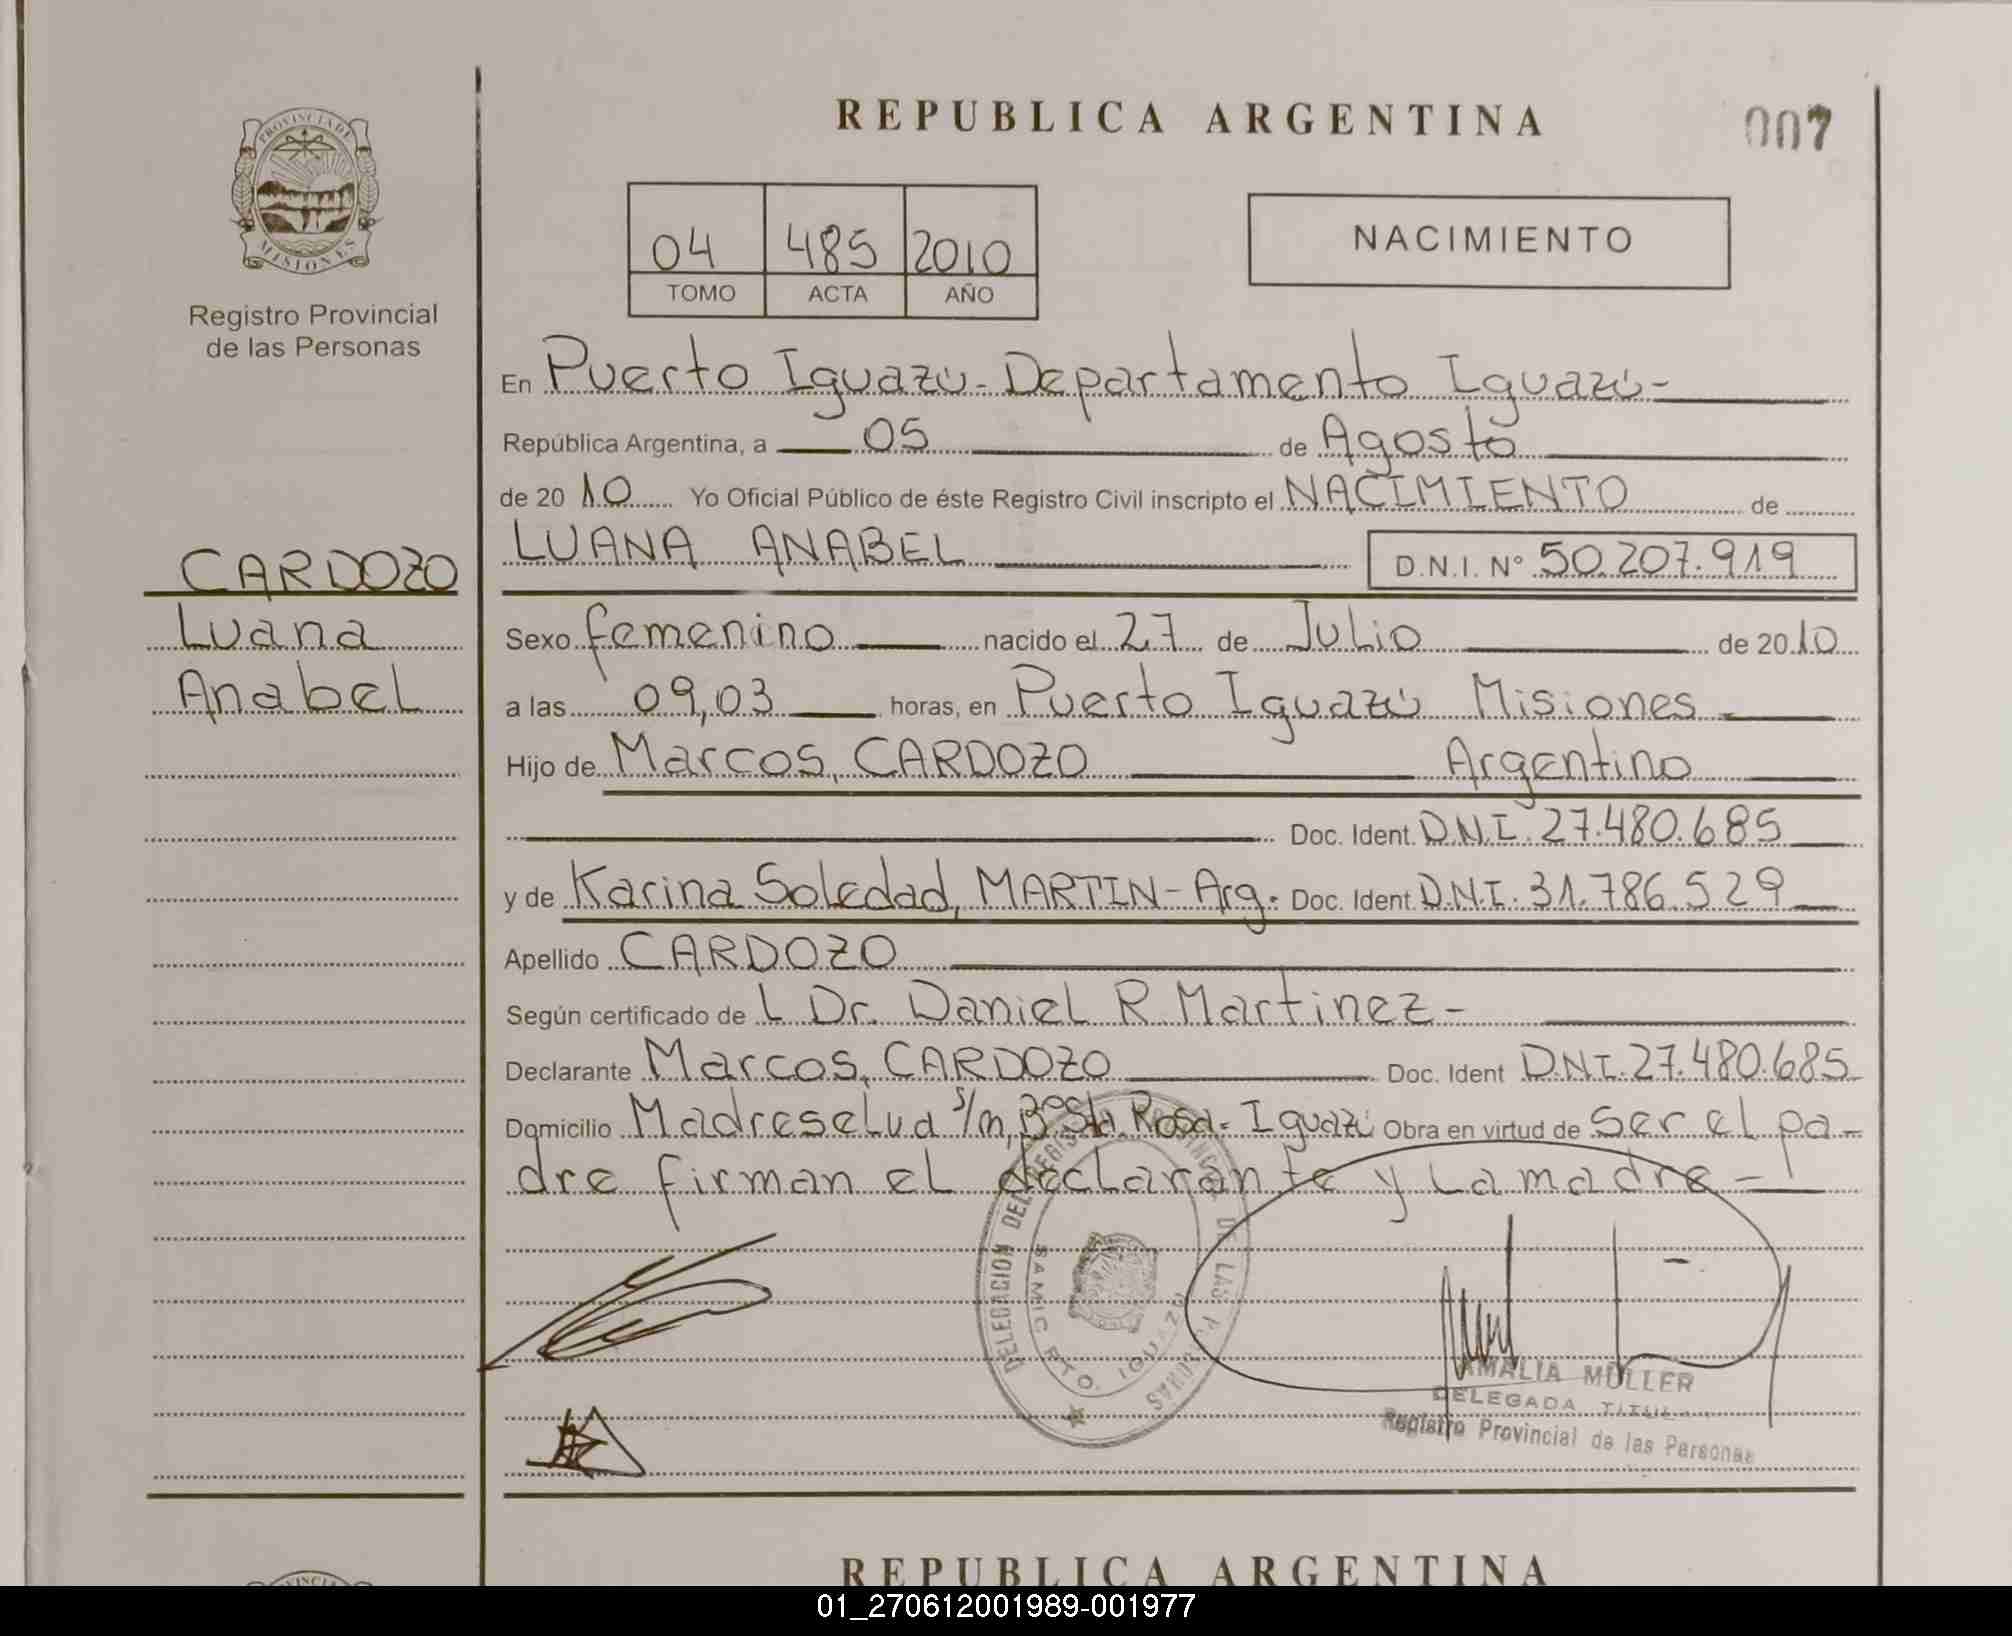 REPUBLICA ARGENTINA
007
PROVINCIA DE
MISIONES
Registro Provincial
de las Personas
04 485 2010
TOMO ACTA AÑO
NACIMIENTO
En Puerto Iguazú - Departamento Iguazú -
República Argentina, a 05 de Agosto
de 2010 Yo Oficial Público de éste Registro Civil inscripto el NACIMIENTO de
LUANA ANABEL D.N.I. Nº 50.207.919
CARDOZO
Luana
Anabel
Sexo femenino nacido el 27 de Julio de 2010
a las 09,03 horas, en Puerto Iguazú Misiones -
Hijo de Marcos, CARDOZO Argentino
Doc. Ident. D.N.I. 27.480.685
y de Karina Soledad, MARTIN - Arg. Doc. Ident. D.N.I. 31.786.529
Apellido CARDOZO
Según certificado de L Dr. Daniel R. Martinez -
Declarante Marcos, CARDOZO Doc. Ident D.N.I. 27.480.685
Domicilio Madreselva s/n, Bº Sta. Rosa - Iguazú Obra en virtud de ser el pa-
dre firman el declarante y la madre -
DELEGACION DEL REGISTRO PROVINCIAL DE LAS PERSONAS
SAMIC PTO. IGUAZU
AMALIA MULLER
DELEGADA
Registro Provincial de las Personas
REPUBLICA ARGENTINA
01_270612001989-001977